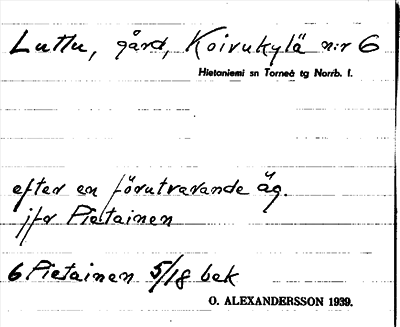 Luttu, gård, Koivukylä n:r 6
Hietaniemi sn Torneå tg Norrb. l.
efter en förutvarande äg.
jfr Pietainen
6 Pietainen 5/18 bak
O. ALEXANDERSSON 1939.